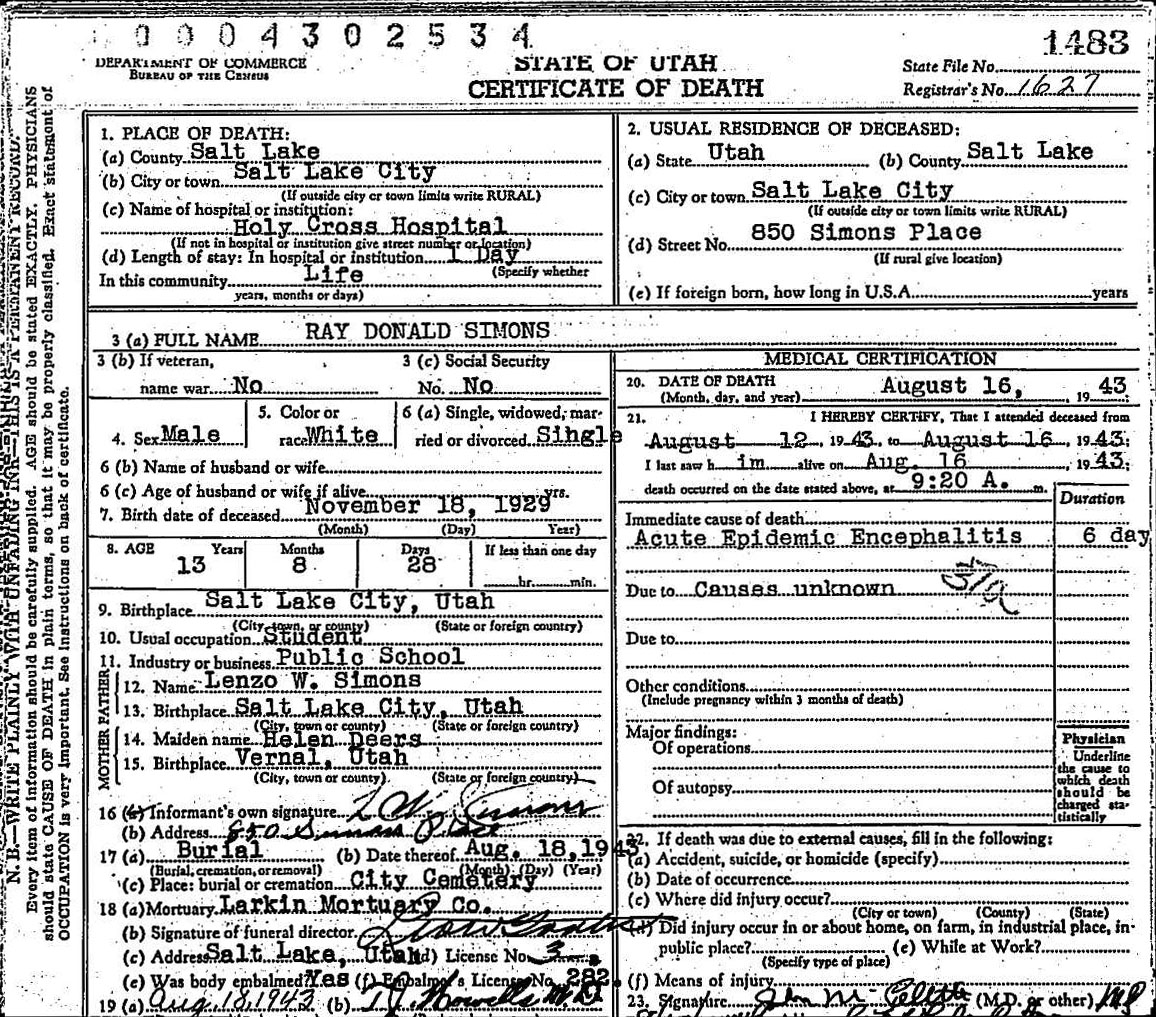 0004302534
1483
DEPARTMENT OF COMMERCE
BUREAU OF THE CENSUS
STATE OF UTAH
CERTIFICATE OF DEATH
State File No.
Registrar's No. 1627
N. B.—WRITE PLAINLY WITH UNFADING INK—THIS IS A PERMANENT RECORD.
Every item of information should be carefully supplied. AGE should be stated EXACTLY. PHYSICIANS
should state CAUSE OF DEATH in plain terms, so that it may be properly classified. Exact statement of
OCCUPATION is very important. See instructions on back of certificate.
1. PLACE OF DEATH:
(a) County Salt Lake
(b) City or town Salt Lake City
(If outside city or town limits write RURAL)
(c) Name of hospital or institution:
Holy Cross Hospital
(If not in hospital or institution give street number or location)
(d) Length of stay: In hospital or institution 1 Day
(Specify whether
In this community Life
years, months or days)
2. USUAL RESIDENCE OF DECEASED:
(a) State Utah (b) County Salt Lake
(c) City or town Salt Lake City
(If outside city or town limits write RURAL)
(d) Street No. 850 Simons Place
(If rural give location)
(e) If foreign born, how long in U.S.A. years
3 (a) FULL NAME RAY DONALD SIMONS
3 (b) If veteran, 3 (c) Social Security
name war No No. No
5. Color or 6 (a) Single, widowed, mar-
4. Sex Male race White ried or divorced Single
6 (b) Name of husband or wife
6 (c) Age of husband or wife if alive yrs.
7. Birth date of deceased November 18, 1929
(Month) (Day) Year)
8. AGE Years Months Days If less than one day
13 8 28 hr. min.
9. Birthplace Salt Lake City, Utah
(City, town, or county) (State or foreign country)
10. Usual occupation Student
11. Industry or business Public School
FATHER
12. Name Lenzo W. Simons
13. Birthplace Salt Lake City, Utah
(City, town or county) (State or foreign country)
MOTHER
14. Maiden name Helen Deers
15. Birthplace Vernal, Utah
(City, town or county) (State or foreign country)
16 (a) Informant's own signature L W Simons
(b) Address 850 Simons Place
17 (a) Burial (b) Date thereof Aug. 18, 1943
(Burial, cremation, or removal) (Month) (Day) (Year)
(c) Place: burial or cremation City Cemetery
18 (a) Mortuary Larkin Mortuary Co.
(b) Signature of funeral director
(c) Address Salt Lake, Utah (d) License No. 3
(e) Was body embalmed? Yes (f) Embalm's License No. 282
19 (a) Aug 18, 1943 (b) T. J. Howells M D
MEDICAL CERTIFICATION
20. DATE OF DEATH August 16, 1943
(Month, day, and year)
21. I HEREBY CERTIFY, That I attended deceased from
August 12, 1943, to August 16, 1943;
I last saw h im alive on Aug. 16, 1943;
death occurred on the date stated above, at 9:20 A. m.
Duration
Immediate cause of death
Acute Epidemic Encephalitis 6 day
Due to Causes unknown
Due to
Other conditions
(Include pregnancy within 3 months of death)
Major findings:
Of operations
Of autopsy
Physician
Underline
the cause to
which death
should be
charged sta-
tistically
22. If death was due to external causes, fill in the following:
(a) Accident, suicide, or homicide (specify)
(b) Date of occurrence
(c) Where did injury occur?
(City or town) (County) (State)
(d) Did injury occur in or about home, on farm, in industrial place, in-
public place? (e) While at Work?
(Specify type of place)
(f) Means of injury
23. Signature John (M.D. or other) MD